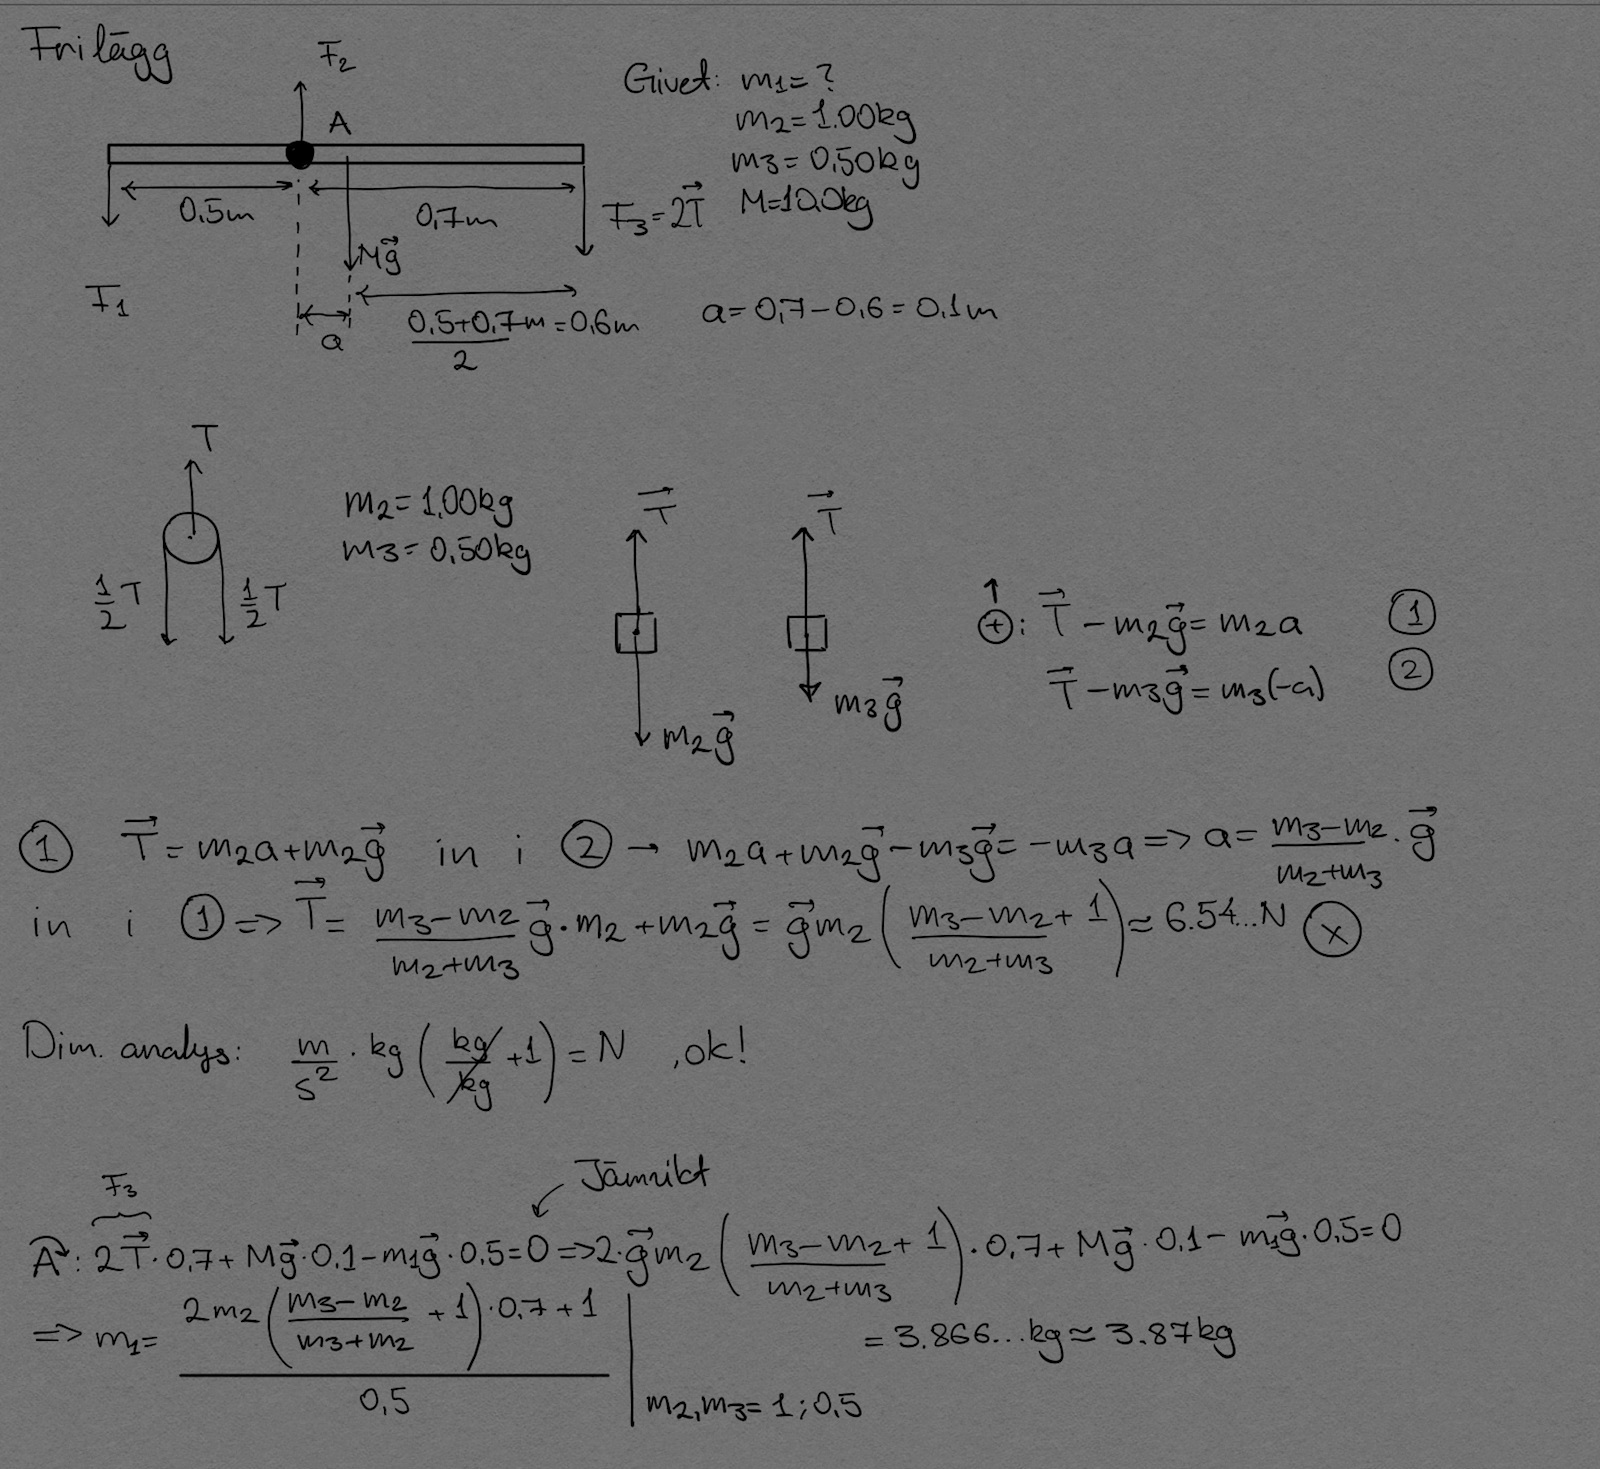 Frilägg
F₂
A
Givet: m₁ = ?
m₂ = 1.00kg
m₃ = 0,50kg
M = 10,0kg
0,5m
0,7m
F₃ = 2T⃗
Mg⃗
F₁
a
0,5+0,7m/2 = 0,6m
a = 0,7 - 0,6 = 0,1m
T
½T
½T
m₂ = 1,00kg
m₃ = 0,50kg
T⃗
m₂g⃗
T⃗
m₃g⃗
↑
⊕: T⃗ - m₂g⃗ = m₂a ①
T⃗ - m₃g⃗ = m₃(-a) ②
① T⃗ = m₂a + m₂g⃗ in i ② → m₂a + m₂g⃗ - m₃g⃗ = -m₃a => a = (m₃-m₂)/(m₂+m₃) · g⃗
in i ① => T⃗ = (m₃-m₂)/(m₂+m₃) g⃗ · m₂ + m₂g⃗ = g⃗m₂((m₃-m₂)/(m₂+m₃) + 1) ≈ 6.54...N ⓧ
Dim. analys: m/s² · kg(kg/kg + 1) = N , ok!
F₃
Jämvikt
A: 2T⃗ · 0,7 + Mg⃗ · 0,1 - m₁g⃗ · 0,5 = 0 => 2 · g⃗m₂((m₃-m₂)/(m₂+m₃) + 1) · 0,7 + Mg⃗ · 0,1 - m₁g⃗ · 0,5 = 0
=> m₁ = (2m₂((m₃-m₂)/(m₃+m₂) + 1) · 0,7 + 1)/0,5 | m₂, m₃ = 1; 0,5 = 3.866...kg ≈ 3.87kg